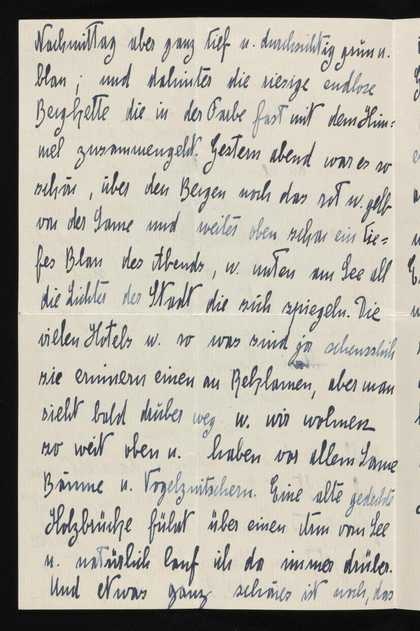 Nachmittag aber ganz tief u. durchsichtig grün u.
blau; und dahinter die riesige endlose
Bergkette die in der Farbe fast mit dem Him-
mel zusammengeht. Gestern abend war es so
schön, über den Bergen noch das rot u. gelb
von der Sonne und weiter oben schon ein tie-
fes Blau des Abends, u. unten am See all
die Lichter der Stadt die sich spiegeln. Die
vielen Hotels u. so was sind ja scheusslich
sie erinnern einen an Reklamen, aber man
sieht bald drüber weg u. wir wohnen
so weit oben u. haben vor allem Sonne
Bäume u. Vogelzwitschern. Eine alte gedeckte
Holzbrücke führt über einen Arm vom See
u. natürlich lauf ich da immer drüber.
Und etwas ganz schönes ist noch, das